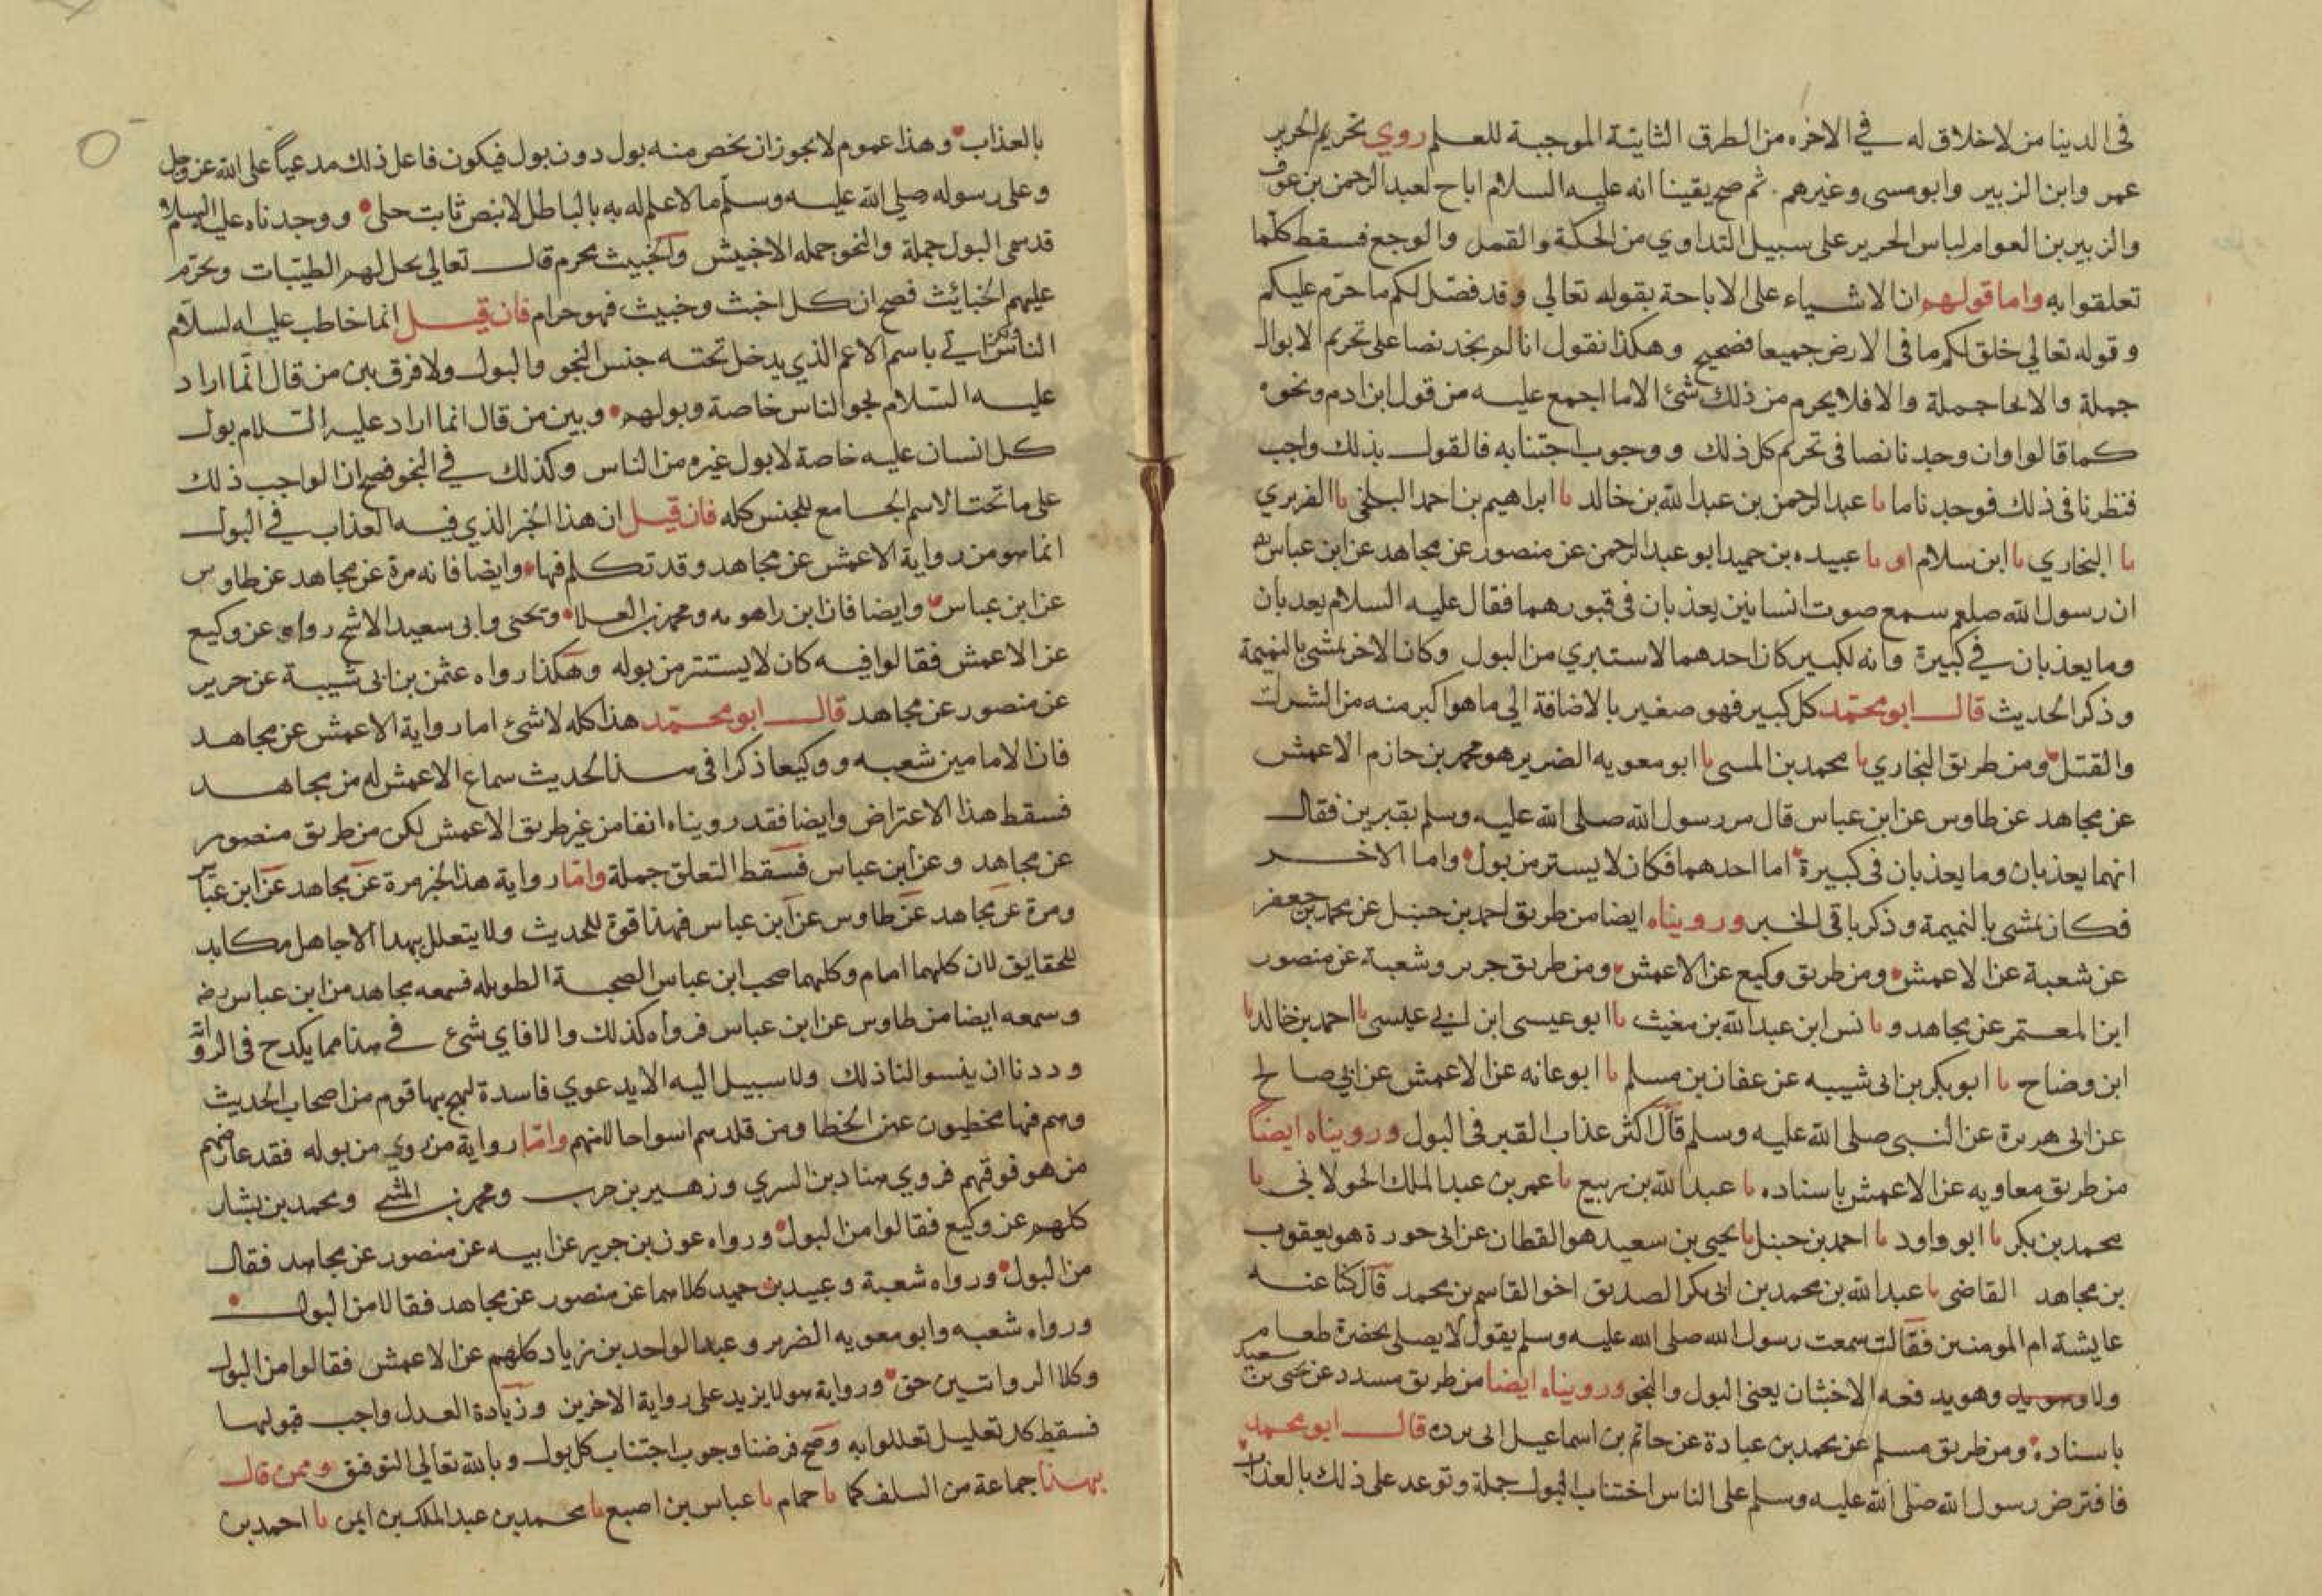 فى الدينا من لا خلاق له في الاخره من الطرق الثابتة الموجبة للعلم روي تحريم الحرير
عمر وابن الزبير وابو مسى وغيرهم . ثم صح يقينا انه عليه السلام اباح لعبد الرحمن بن عوف
والزبير بن العوام لباس الحرير على سبيل التداوي من الحكة والقمل والوجع فسقط كلما
تعلقوا به واما قولهم ان الاشياء على الاباحة بقوله تعالي وقد فصل لكم ما حرم عليكم
وقوله تعالي خلق لكم ما فى الارض جميعا فصحيح وهكذا نقول انا لو لم نجد نصا على تحريم الابوال
جملة والانحا جملة والا فلا يحرم من ذلك شئ الا ما اجمع عليه من قول ابن ادم ونحوه
كما قالوا وان وجدنا نصا فى تحريم كل ذلك ووجوب اجتنابه فالقول بذلك واجب
فنظرنا فى ذلك فوجدنا ما نا عبد الرحمن بن عبد الله بن خالد نا ابراهيم بن احمد البلخى نا الفربري
نا البخاري نا ابن سلام انا عبيده بن حميد ابو عبد الرحمن عن منصور عن مجاهد عن ابن عباس
ان رسول الله صلعم سمع صوت انسانين يعذبان فى قبورهما فقال عليه السلام يعذبان
وما يعذبان في كبيرة وانه لكبير كان احدهما لا ستبري من البول وكان الاخر يمشى بالنميمة
وذكر الحديث قال ابو محمد كل كبير فهو صغير بالاضافة الي ما هو اكبر منه من الشرك
والقتل ومن طريق البخاري نا محمد بن المسى نا ابو معويه الضرير هو محمد بن حازم الاعمش
عن مجاهد عن طاوس عن ابن عباس قال مر رسول الله صلى الله عليه وسلم بقبرين فقال
انهما يعذبان وما يعذبان فى كبيرة اما احدهما فكان لا يستتر من بول واما الاخر
فكان يمشى بالنميمة وذكر باقى الخبر وروبناه ايضا من طريق احمد بن حنبل عن محمد بن جعفر
عن شعبة عن الاعمش ومن طريق وكيع عن الاعمش ومن طريق جرير وشعبة عن منصور
ابن المعتمر عن مجاهد و نا نس ابن عبد الله بن مغيث نا ابو عيسى ابن ابي عيسى نا احمد بن خالد نا
ابن وضاح نا ابو بكر بن ابى شيبه عن عفان بن مسلم نا ابو عانه عن الاعمش عن ابي صالح
عن ابى هريرة عن النبى صلى الله عليه وسلم قال اكثر عذاب القبر فى البول وروبناه ايضا
من طريق معاويه عن الاعمش باسناده نا عبد الله بن ربيع نا عمر بن عبد الملك الخولانى نا
محمد بن بكر نا ابو واود نا احمد بن حنبل نا يحيى بن سعيد هو القطان عن ابى حورة هو يعقوب
بن مجاهد القاضى نا عبد الله بن محمد بن ابى بكر الصديق اخو القاسم بن محمد قال كنا عنه
عايشة ام المومنين فقالت سمعت رسول الله صلى الله عليه وسلم يقول لا يصلى بحضرة طعام
ولا وهو يد فعه الاخبثان يعنى البول والنجو وروبناه ايضا من طريق مسدد عن يحيى بن سعيد
باسناده ومن طريق مسلم عن محمد بن عبادة عن حاتم بن اسماعيل ابى برده قال ابو محمد
فافترض رسول الله صلى الله عليه وسلم على الناس اجتناب البول جملة وتوعد على ذلك بالعذاب
بالعذاب وهذا عموم لا يجوز ان يخص منه بول دون بول فيكون فاعل ذلك مدعيا على الله عز وجل
وعلى رسوله صلى الله عليه وسلم ما لا علم له به بالباطل لا بنص ثابت جلى ووجدناه عليه السلام
قد سمى البول جملة والنجو جمله الاخبيثين والخبيث محرم قال تعالى يحل لهم الطيبات ويحرم
عليهم الخبائث فصح ان كل اخبث وخبيث فهو حرام فان قيل انما خاطب عليه السلام
الناس باسم الاعم الذي يدخل تحته جنس النجو والبول ولا فرق بين من قال انما اراد
عليه السلام نجو الناس خاصة وبولهم وبين من قال انما اراد عليه السلام بول
كل انسان عليه خاصة لا بول غيره من الناس وكذلك في النجو فصح ان الواجب ذلك
على ما تحت الاسم الجامع للجنس كله فان قيل ان هذا الخبر الذي فيه العذاب في البول
انما هو من رواية الاعمش عن مجاهد وقد تكلم فيها وايضا فانه مرة عن مجاهد عن طاوس
عن ابن عباس وايضا فان ابن راهويه ومحمد بن العلا ويحيى وابى سعيد الاشج رووه عن وكيع
عن الاعمش فقالوا فيه كان لا يستتر من بوله وهكذا رواه عثمن بن ابى شيبة عن جرير
عن منصور عن مجاهد قال ابو محمد هذا كله لا شئ اما رواية الاعمش عن مجاهد
فان الامامين شعبه ووكيعا ذكرا فى هذا الحديث سماع الاعمش له من مجاهد
فسقط هذا الاعتراض وايضا فقد رويناه انفا من غير طريق الاعمش لكن من طريق منصور
عن مجاهد وعن ابن عباس فسقط التعلق جملة واما رواية هذا الخبر مرة عن مجاهد عن ابن عباس
ومرة عن مجاهد عن طاوس عن ابن عباس فهذا قوة للحديث ولا يتعلل بهذا الا جاهل مكابد
للحقايق لان كليهما امام وكليهما صحب ابن عباس الصحبة الطويله فسمعه مجاهد من ابن عباس رضه
وسمعه ايضا من طاوس عن ابن عباس فرواه كذلك والا فاي شئ في هذا مما يكدح فى الرواية
ووددنا ان يبينوا لنا ذلك ولا سبيل اليه الا بدعوي فاسدة لهج بها قوم من اصحاب الحديث
وهم فيها مخطيون عين الخطا ومن قلدهم اسوا حالا منهم واما رواية من روي من بوله فقد عارضهم
من هو فوقهم فروي هناد بن السري وزهير بن حرب ومحمد بن المثنى ومحمد بن بشار
كلهم عن وكيع فقالوا من البول ورواه عون بن جرير عن ابيه عن منصور عن مجاهد فقال
من البول ورواه شعبة وعبيد بن حميد كلاهما عن منصور عن مجاهد فقالا من البول
ورواه شعبه وابو معويه الضرير وعبد الواحد بن زياد كلهم عن الاعمش فقالوا من البول
وكلا الرواتين حق ورواية هولا يزيد على رواية الاخرين وزيادة العدل واجب قبولها
فسقط كل تعليل تعللوا به وصح فرضنا وجوب اجتناب كل بول وبالله تعالي التوفيق وممن قال
بهذا جماعة من السلف كما نا حمام نا عباس بن اصبع نا محمد بن عبد الملك بن ايمن نا احمد بن